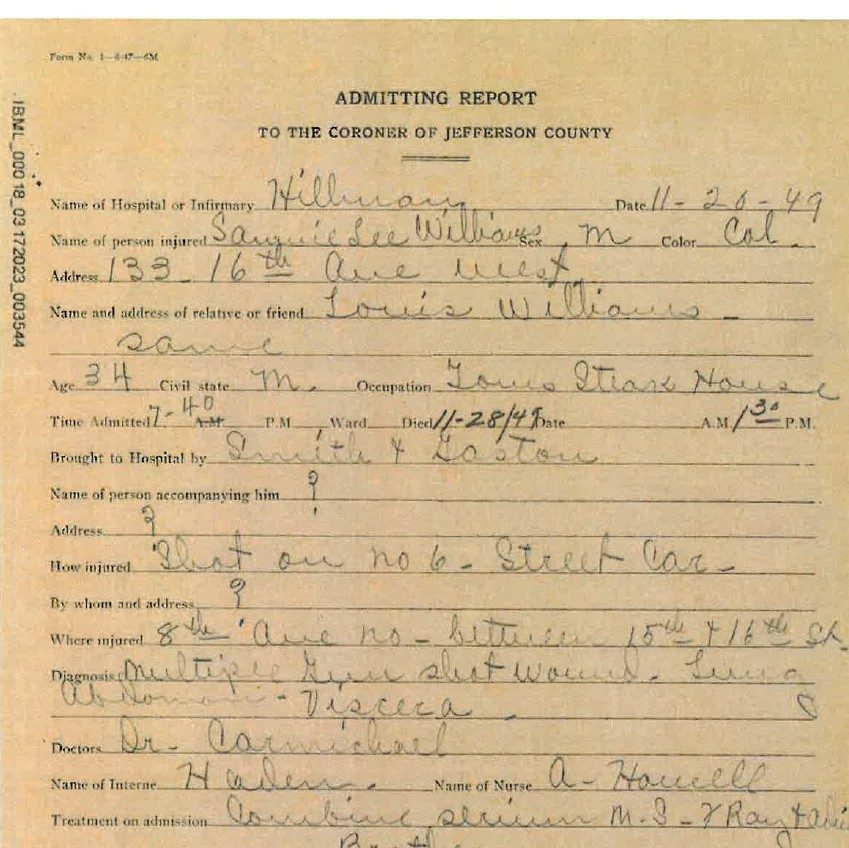 Form No. 1—8-47—6M
IBML_000 18_03 172023_003544
ADMITTING REPORT
TO THE CORONER OF JEFFERSON COUNTY
Name of Hospital or Infirmary Hillman Date 11-20-49
Name of person injured Lee Williams Sex M Color Col.
Address 133 - 16th Ave West
Name and address of relative or friend Louis Williams -
same
Age 34 Civil state M. Occupation Steak House
Time Admitted 7-40 A.M. P.M. Ward Died 11-28/49 Date A.M. 1 30 P.M.
Brought to Hospital by Smith & Gaston
Name of person accompanying him ?
Address ?
How injured Shot on no 6 - Street Car -
By whom and address ?
Where injured 8th Ave no - between 15th & 16th St.
Diagnosis Multiple Gun shot wound -
Abdomen - Viscera
Doctors Dr - Carmichael
Name of Interne Haden. Name of Nurse A - Howell
Treatment on admission Combine serum M.S -